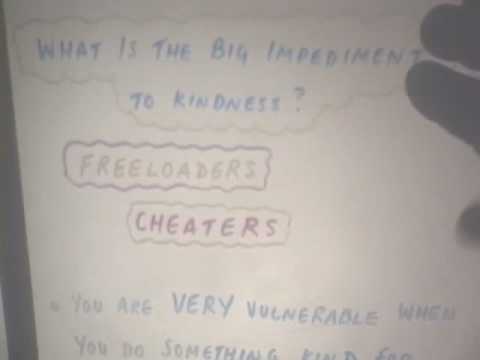 WHAT IS THE BIG IMPEDIMENT
TO KINDNESS?
FREELOADERS
CHEATERS
YOU ARE VERY VULNERABLE WHEN
YOU DO SOMETHING KIND FOR